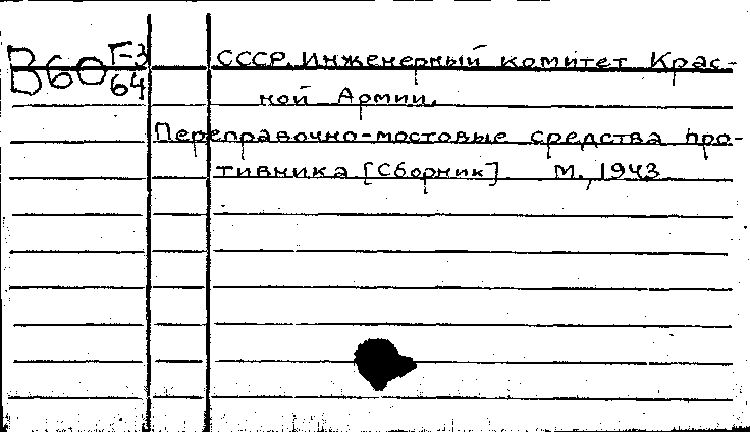 В60 Г-3
64
СССР. Инженерный комитет Крас-
ной Армии.
Переправочно-мостовые средства про-
тивника [Сборник] М., 1943